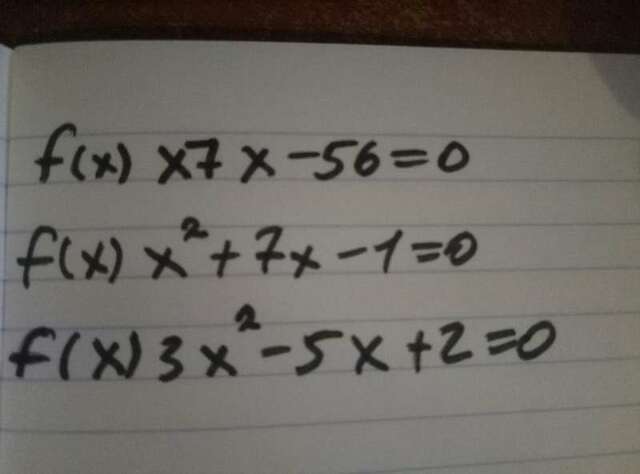 f(x) x7x-56=0
f(x) x²+7x-1=0
f(x) 3x²-5x+2=0